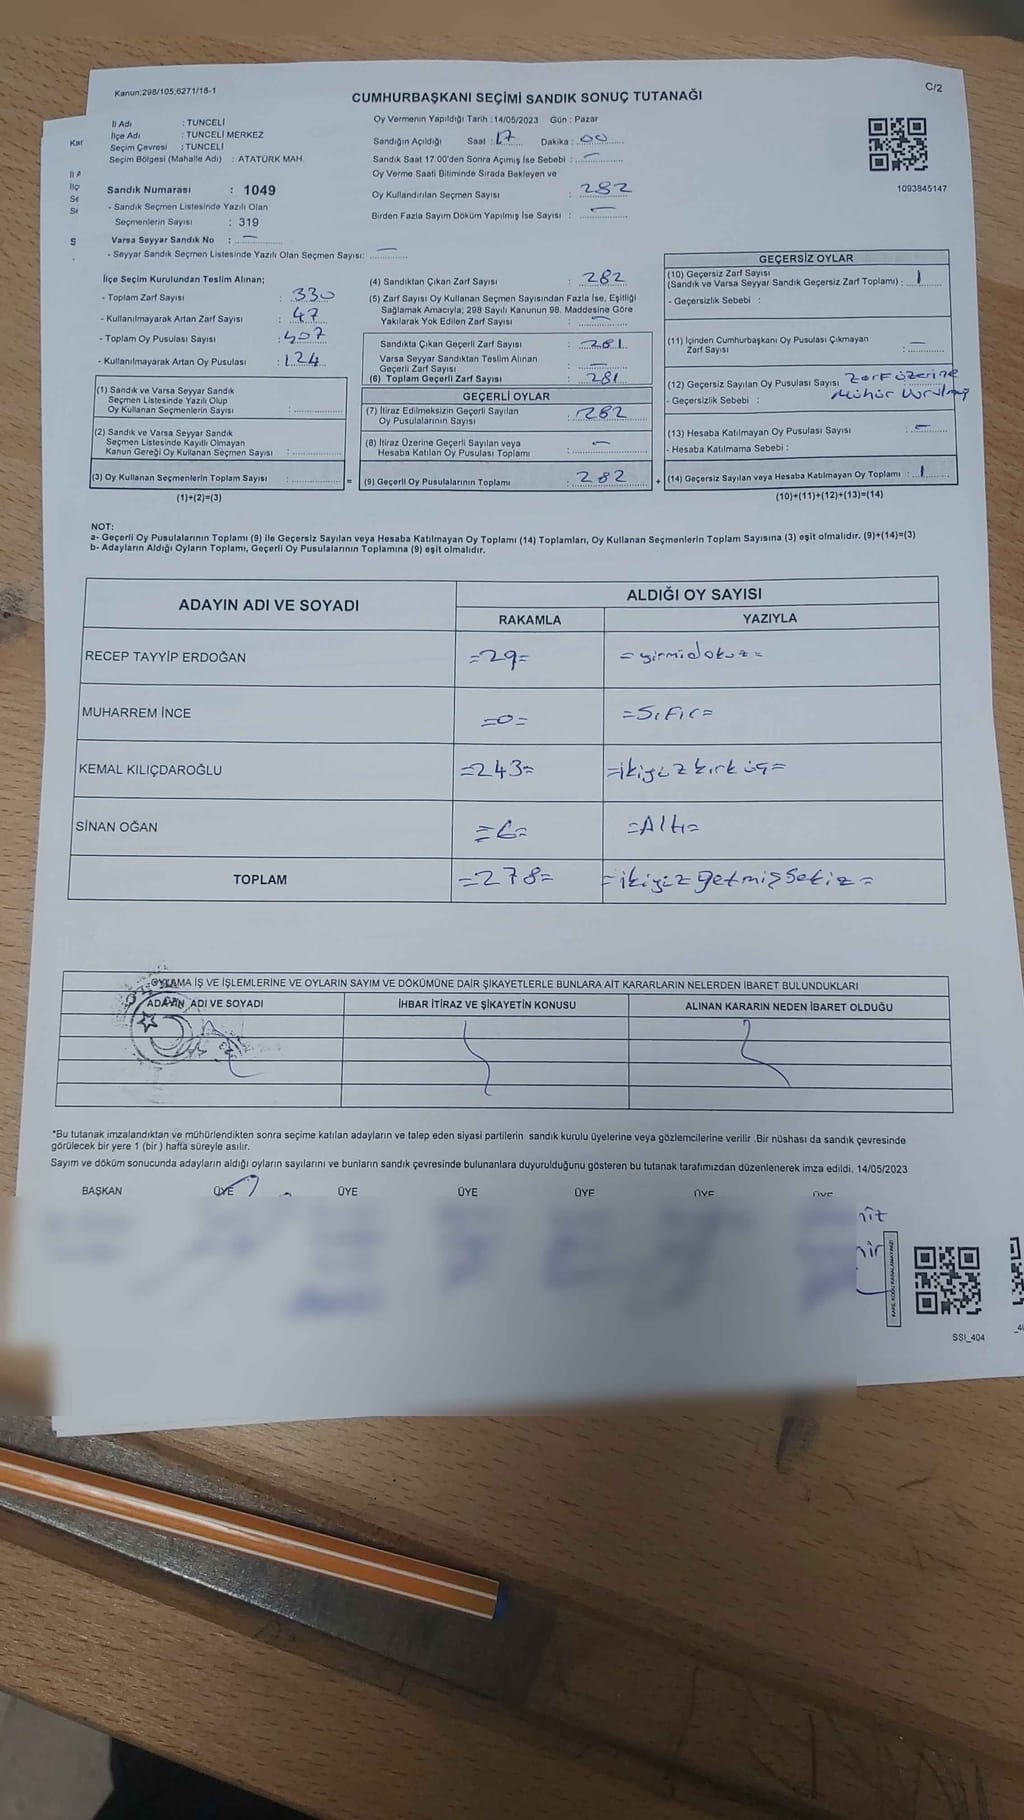 Kanun;298/105;6271/18-1
C/2
CUMHURBAŞKANI SEÇİMİ SANDIK SONUÇ TUTANAĞI
İl Adı : TUNCELİ
İlçe Adı : TUNCELİ MERKEZ
Seçim Çevresi : TUNCELİ
Seçim Bölgesi (Mahalle Adı) : ATATÜRK MAH.
Sandık Numarası : 1049
- Sandık Seçmen Listesinde Yazılı Olan
Seçmenlerin Sayısı : 319
Varsa Seyyar Sandık No : —
- Seyyar Sandık Seçmen Listesinde Yazılı Olan Seçmen Sayısı: —
Oy Vermenin Yapıldığı Tarih : 14/05/2023 Gün : Pazar
Sandığın Açıldığı Saat : 17 Dakika : 00
Sandık Saat 17.00'den Sonra Açımış İse Sebebi : —
Oy Verme Saati Bitiminde Sırada Bekleyen ve
Oy Kullandırılan Seçmen Sayısı : 282
Birden Fazla Sayım Döküm Yapılmış İse Sayısı : —
1093845147
İlçe Seçim Kurulundan Teslim Alınan;
- Toplam Zarf Sayısı : 330
- Kullanılmayarak Artan Zarf Sayısı : 47
- Toplam Oy Pusulası Sayısı : 407
- Kullanılmayarak Artan Oy Pusulası : 124
(1) Sandık ve Varsa Seyyar Sandık
Seçmen Listesinde Yazılı Olup
Oy Kullanan Seçmenlerin Sayısı :
(2) Sandık ve Varsa Seyyar Sandık
Seçmen Listesinde Kayıtlı Olmayan
Kanun Gereği Oy Kullanan Seçmen Sayısı :
(3) Oy Kullanan Seçmenlerin Toplam Sayısı : =
(1)+(2)=(3)
(4) Sandıktan Çıkan Zarf Sayısı : 282
(5) Zarf Sayısı Oy Kullanan Seçmen Sayısından Fazla İse, Eşitliği
Sağlamak Amacıyla; 298 Sayılı Kanunun 98. Maddesine Göre
Yakılarak Yok Edilen Zarf Sayısı : —
Sandıkta Çıkan Geçerli Zarf Sayısı : 281
Varsa Seyyar Sandıktan Teslim Alınan
Geçerli Zarf Sayısı : —
(6) Toplam Geçerli Zarf Sayısı : 281
GEÇERLİ OYLAR
(7) İtiraz Edilmeksizin Geçerli Sayılan
Oy Pusulalarının Sayısı : 282
(8) İtiraz Üzerine Geçerli Sayılan veya
Hesaba Katılan Oy Pusulaları Toplamı : —
(9) Geçerli Oy Pusulalarının Toplamı : 282 +
GEÇERSİZ OYLAR
(10) Geçersiz Zarf Sayısı
(Sandık ve Varsa Seyyar Sandık Geçersiz Zarf Toplamı) : 1
- Geçersizlik Sebebi :
(11) İçinden Cumhurbaşkanı Oy Pusulası Çıkmayan
Zarf Sayısı : —
(12) Geçersiz Sayılan Oy Pusulası Sayısı Zarf üzerine
- Geçersizlik Sebebi : Mühür Vurulmuş
(13) Hesaba Katılmayan Oy Pusulası Sayısı : —
- Hesaba Katılmama Sebebi :
(14) Geçersiz Sayılan veya Hesaba Katılmayan Oy Toplamı : 1
(10)+(11)+(12)+(13)=(14)
NOT:
a- Geçerli Oy Pusulalarının Toplamı (9) ile Geçersiz Sayılan veya Hesaba Katılmayan Oy Toplamı (14) Toplamları, Oy Kullanan Seçmenlerin Toplam Sayısına (3) eşit olmalıdır. (9)+(14)=(3)
b- Adayların Aldığı Oyların Toplamı, Geçerli Oy Pusulalarının Toplamına (9) eşit olmalıdır.
ADAYIN ADI VE SOYADI
ALDIĞI OY SAYISI
RAKAMLA YAZIYLA
RECEP TAYYİP ERDOĞAN =29= =yirmidokuz=
MUHARREM İNCE =0= =Sıfır=
KEMAL KILIÇDAROĞLU =243= =ikiyüzkırküç=
SİNAN OĞAN =6= =Altı=
TOPLAM =278= =ikiyüzyetmişsekiz=
OYLAMA İŞ VE İŞLEMLERİNE VE OYLARIN SAYIM VE DÖKÜMÜNE DAİR ŞİKAYETLERLE BUNLARA AİT KARARLARIN NELERDEN İBARET BULUNDUKLARI
ADAYIN ADI VE SOYADI İHBAR İTİRAZ VE ŞİKAYETİN KONUSU ALINAN KARARIN NEDEN İBARET OLDUĞU
*Bu tutanak imzalandıktan ve mühürlendikten sonra seçime katılan adayların ve talep eden siyasi partilerin sandık kurulu üyelerine veya gözlemcilerine verilir .Bir nüshası da sandık çevresinde
görülecek bir yere 1 (bir ) hafta süreyle asılır.
Sayım ve döküm sonucunda adayların aldığı oyların sayılarını ve bunların sandık çevresinde bulunanlara duyurulduğunu gösteren bu tutanak tarafımızdan düzenlenerek imza edildi. 14/05/2023
BAŞKAN ÜYE ÜYE ÜYE ÜYE ÜYE ÜYE
KARE KODU KARALAMAYINIZ!
SSI_404